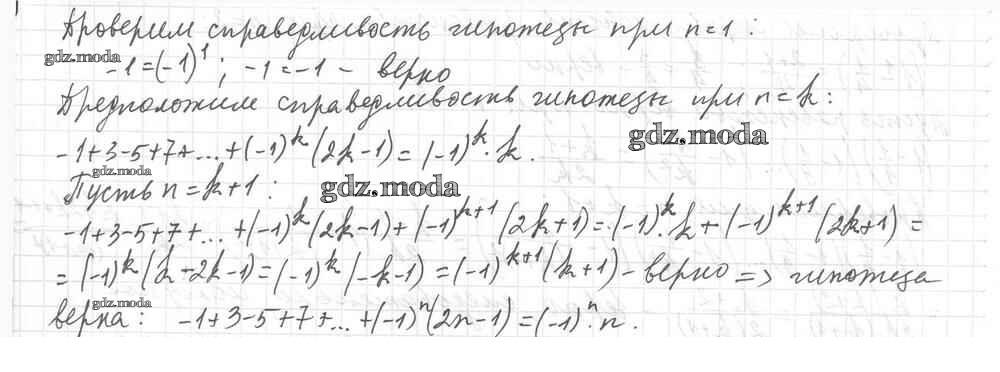 Проверим справедливость гипотезы при n=1:
gdz.moda
-1=(-1)¹; -1=-1 - верно
Предположим справедливость гипотезы при n=k:
gdz.moda
-1+3-5+7+...+(-1)^k(2k-1)=(-1)^k·k.
gdz.moda
Пусть n=k+1:
gdz.moda
-1+3-5+7+...+(-1)^k(2k-1)+(-1)^{k+1}(2k+1)=(-1)^k·k+(-1)^{k+1}(2k+1)=
=(-1)^k(k-2k-1)=(-1)^k(-k-1)=(-1)^{k+1}(k+1)-верно=> гипотеза
gdz.moda
верна: -1+3-5+7+...+(-1)^n(2n-1)=(-1)^n·n.